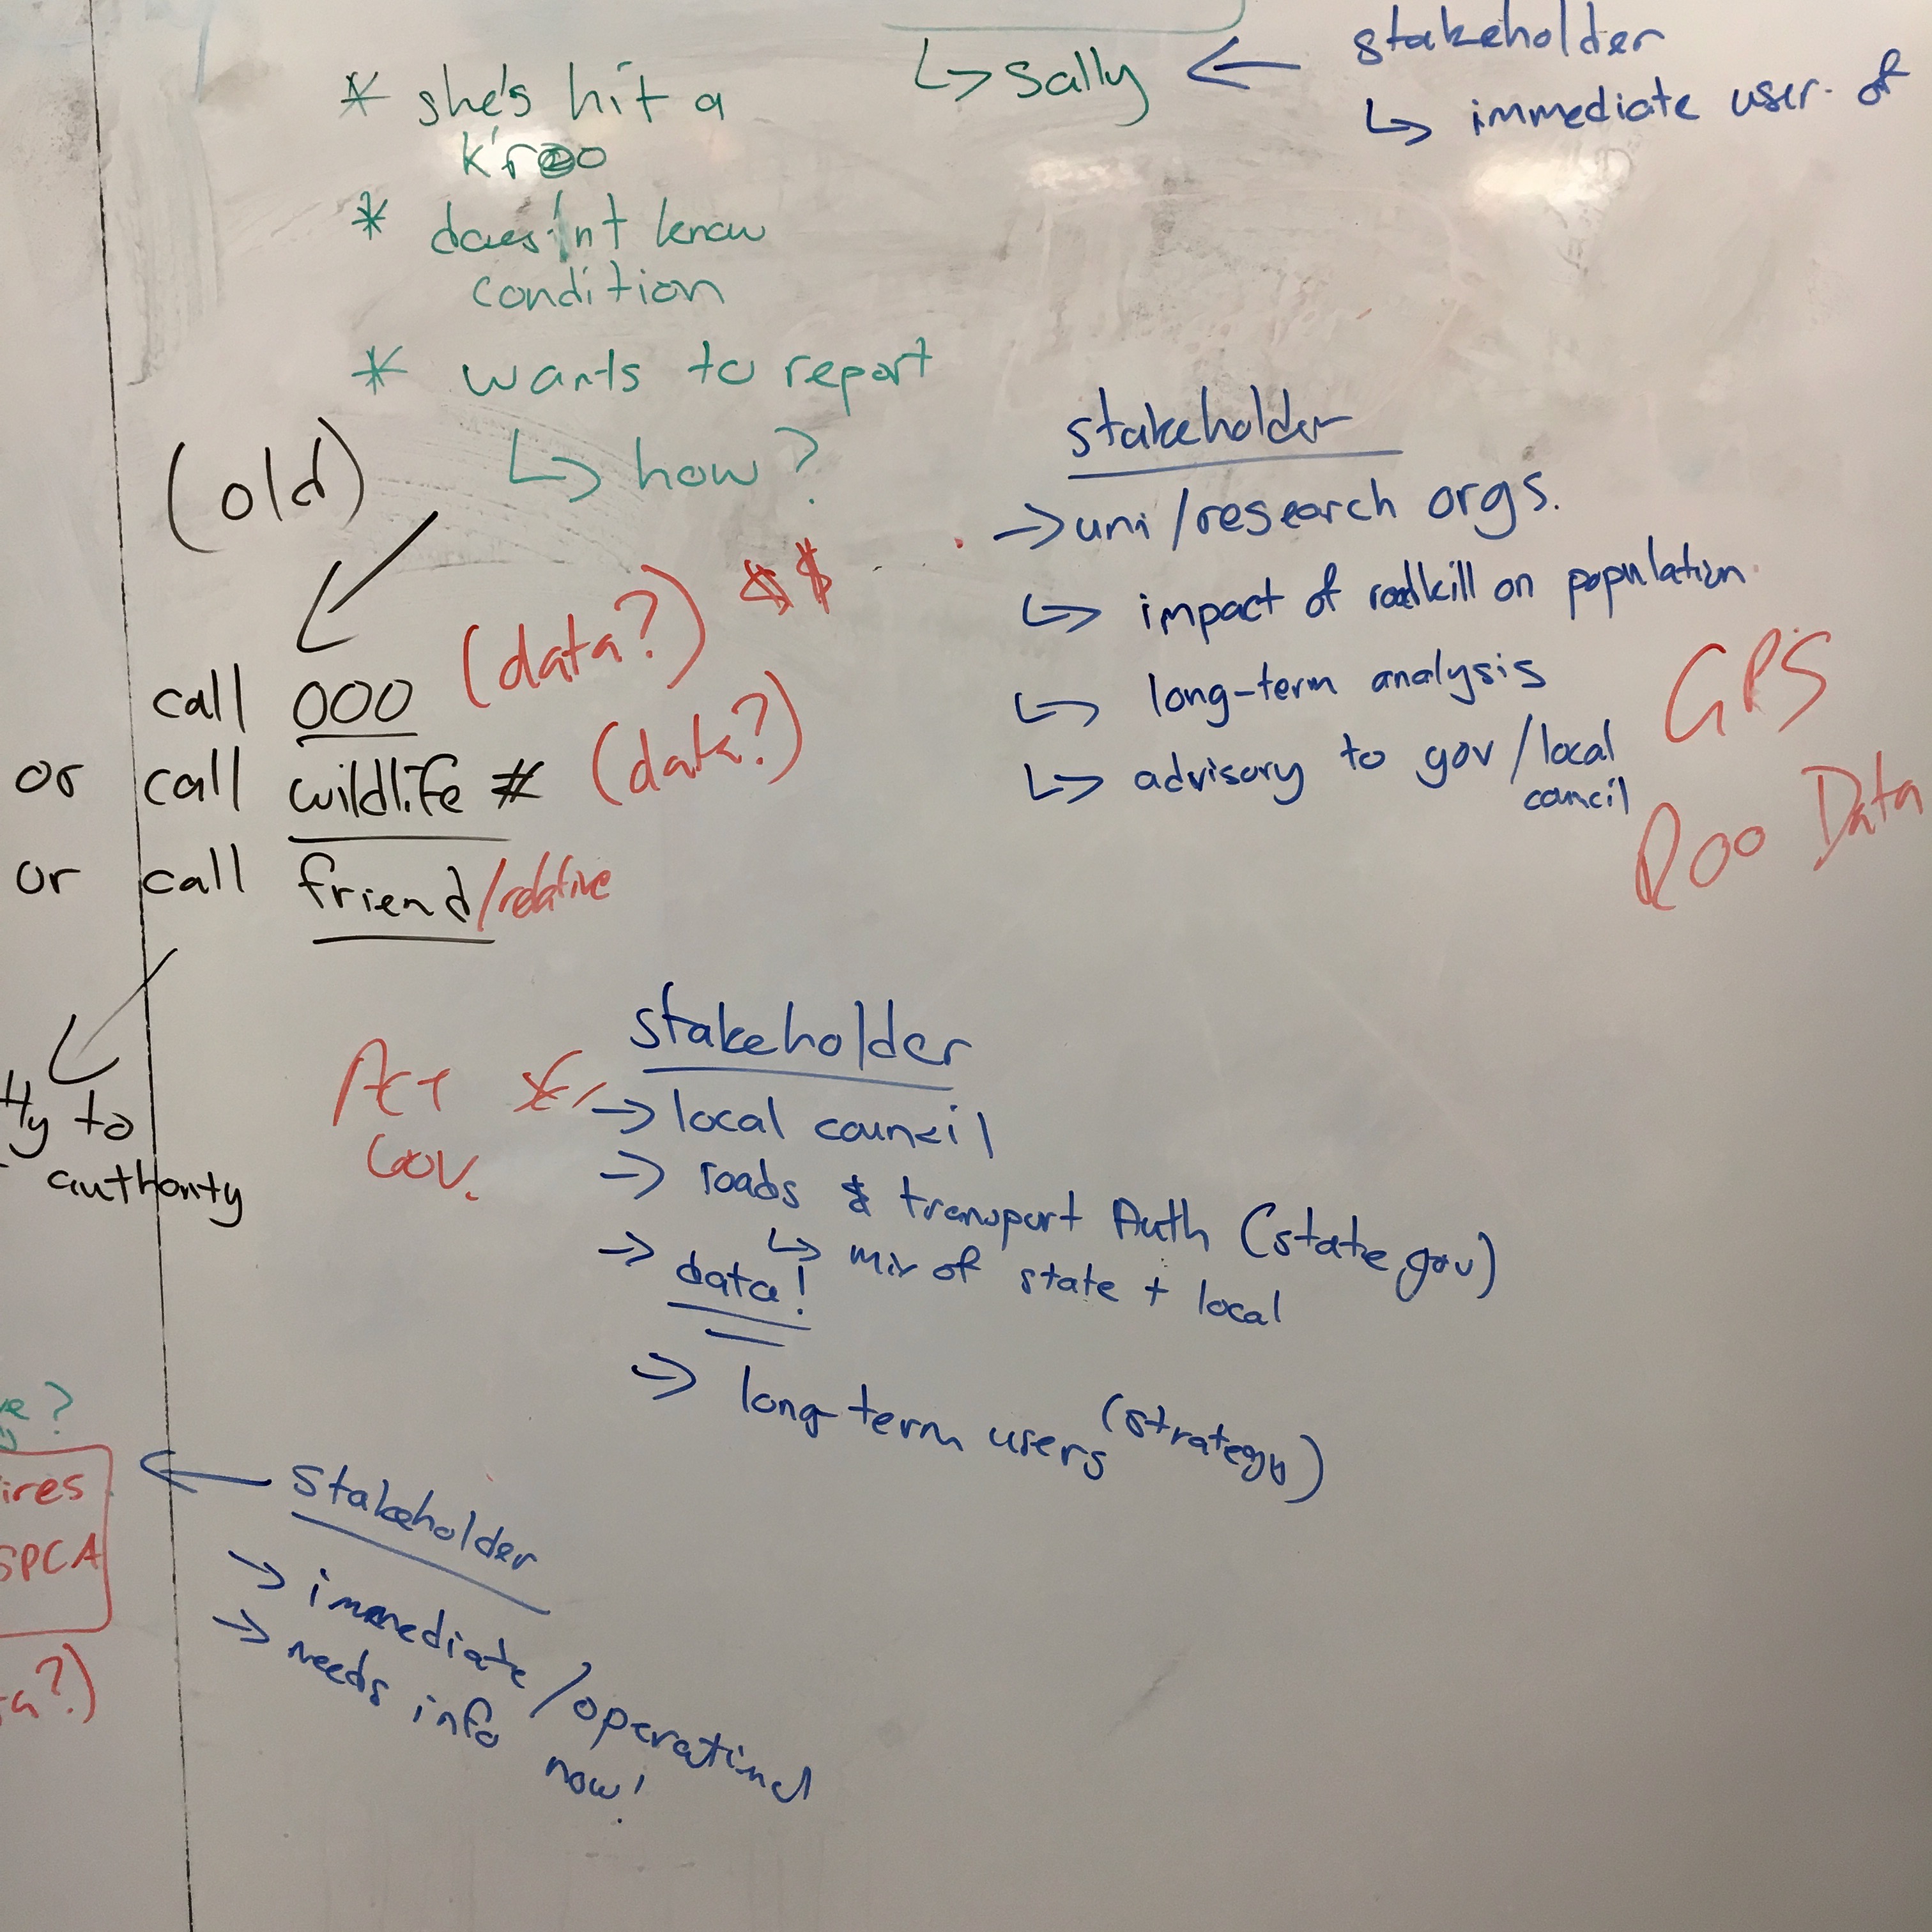 ↳ sally ← stakeholder
↳ immediate user of
* she's hit a
k'roo
* does'nt know
condition
* wants to report
↳ how?
(old)
call 000 (data?) $$
or call wildlife # (data?)
or call friend/relative
authority
stakeholder
→ uni/research orgs.
↳ impact of roadkill on population
↳ long-term analysis
↳ advisory to gov/local
council
GPS
Roo Data
stakeholder
ACT
Gov.
→ local council
→ roads & transport Auth (state gov)
↳ mix of state + local
→ data!
→ long-term users (strategy)
← stakeholder
→ immediate/operational
→ needs info
now!
SPCA